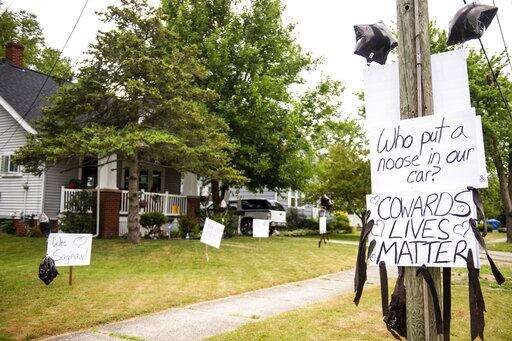 Who put a
noose in our
car?
COWARDS
LIVES
MATTER
We ♡
Saginaw